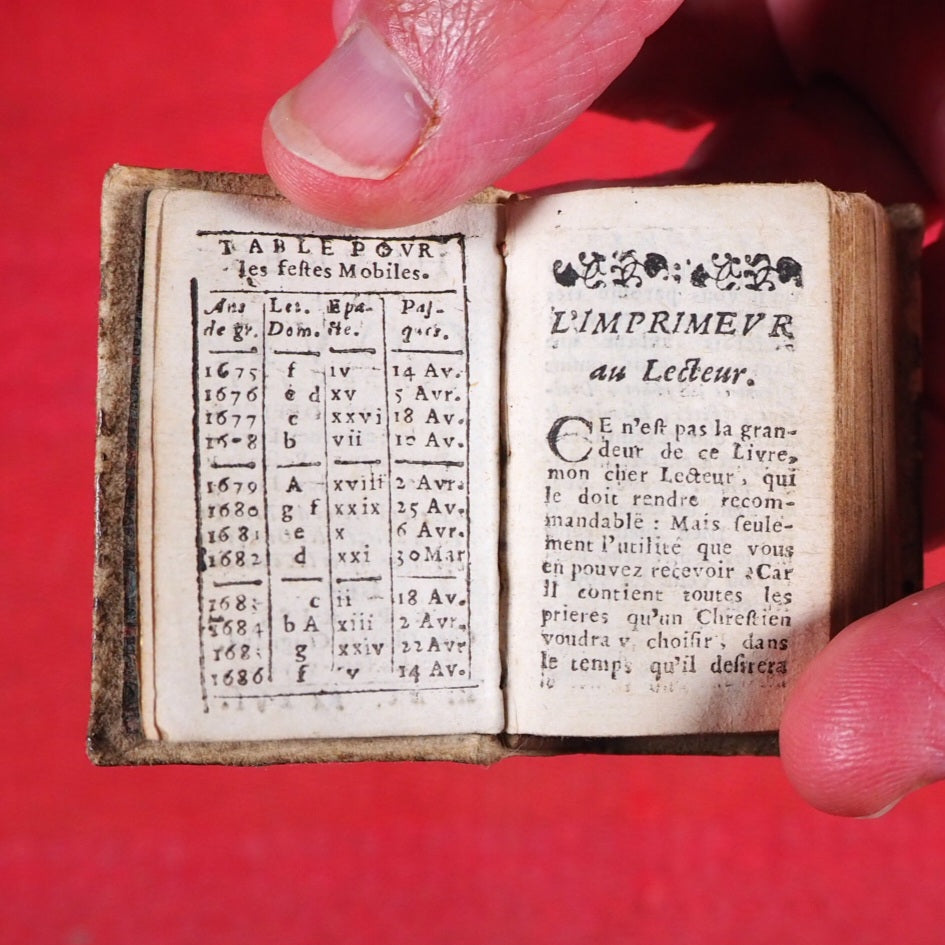 TABLE POVR
les feſtes Mobiles.
Ans Let. Epa- Paſ-
de gr. Dom. cte. ques.
1675 f iv 14 Av.
1676 e d xv 5 Avr.
1677 c xxvi 18 Av.
b vii Av.
1679 A xviii 2 Avr.
1680 g f xxix 21 Av.
1681 e x 6 Avr.
1682 d xxi 30 Mar
c ii 18 Av.
1684 b A xiii 2 Avr.
g xxiv 22 Avr
1686 f v 14 Av.
L'IMPRIMEVR
au Lecteur.
CE n'eſt pas la gran-
deur de ce Livre,
mon cher Lecteur, qui
le doit rendre recom-
mandable : Mais ſeule-
ment l'utilité que vous
en pouvez recevoir Car
Il contient toutes les
prieres qu'un Chreſtien
voudra y choiſir, dans
le temps qu'il deſirera